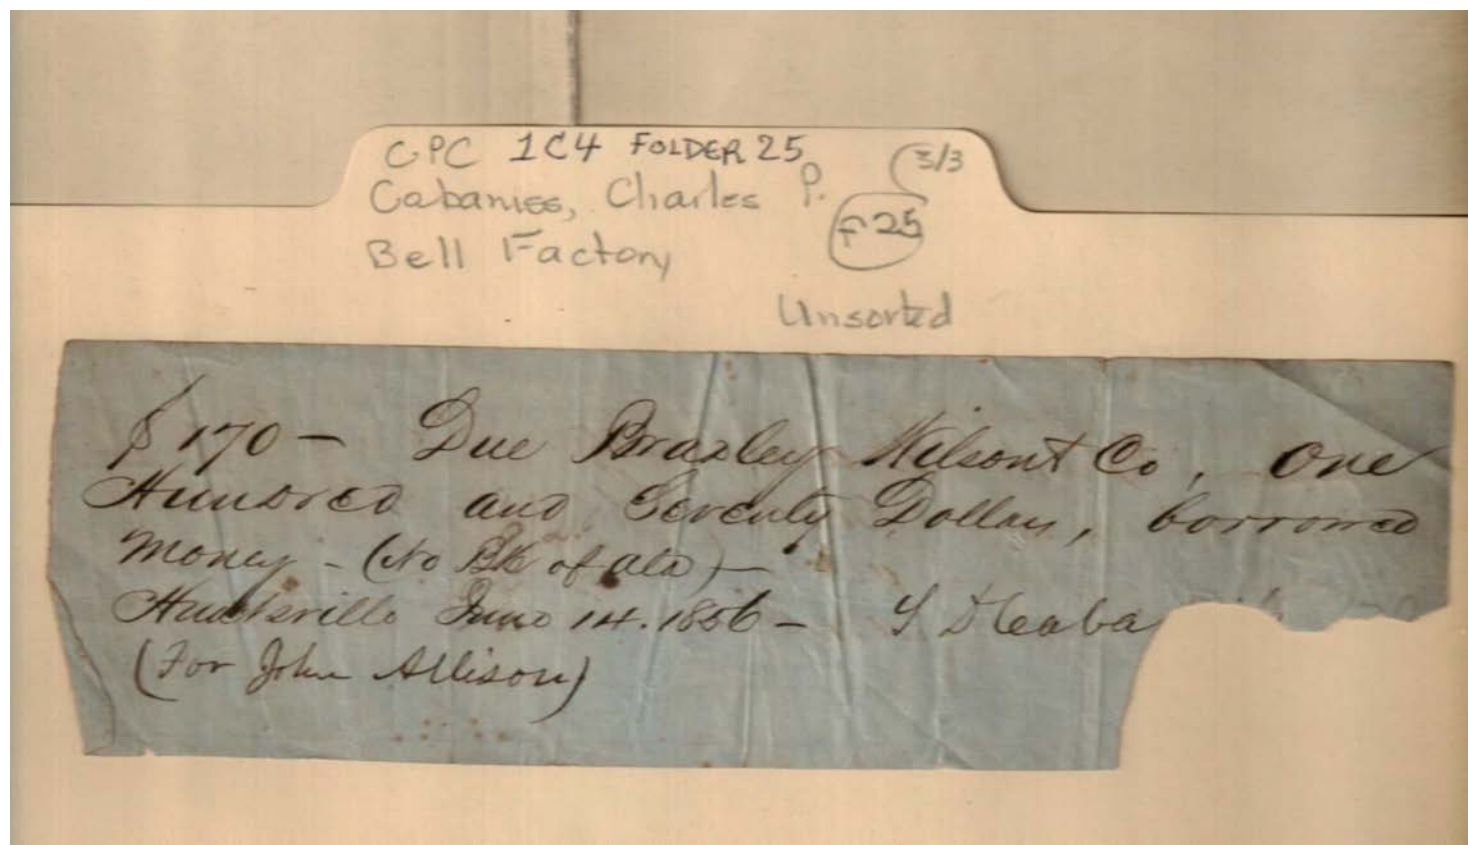 CPC 1C4 FOLDER 25
3/3
Cabaniss, Charles P.
F 25
Bell Factory
Unsorted
$170 — Due Braxley Wilson & Co, One
Hundred and Seventy Dollars, borrowed
Money - (No Bk of Ala) —
Huntsville June 14. 1856 — S D Caba
(For John Allison)